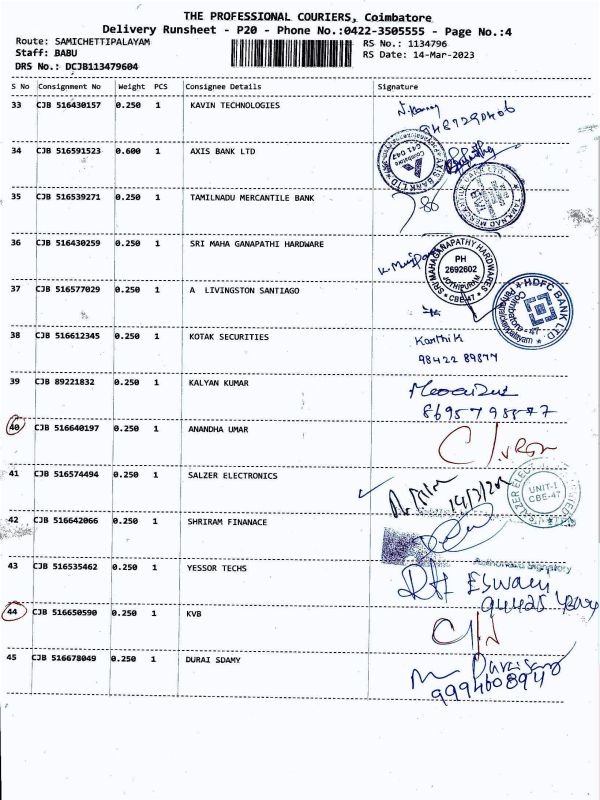 THE PROFESSIONAL COURIERS, Coimbatore
Delivery Runsheet - P20 - Phone No.:0422-3505555 - Page No.:4
Route: SAMICHETTIPALAYAM RS No.: 1134796
Staff: BABU RS Date: 14-Mar-2023
DRS No.: DCJB113479604
S No Consignment No Weight PCS Consignee Details Signature
33 CJB 516430157 0.250 1 KAVIN TECHNOLOGIES
9487290406
34 CJB 516591523 0.600 1 AXIS BANK LTD
AXIS BANK LTD
Coimbatore
35 CJB 516539271 0.250 1 TAMILNADU MERCANTILE BANK
36 CJB 516430259 0.250 1 SRI MAHA GANAPATHI HARDWARE
SRI MAHAGANAPATHY HARDWARES
PH
2692602
JOTHIPURAM
CBE-47
37 CJB 516577029 0.250 1 A LIVINGSTON SANTIAGO
HDFC BANK LTD
38 CJB 516612345 0.250 1 KOTAK SECURITIES
Karthik
98422 89877
39 CJB 89221832 0.250 1 KALYAN KUMAR
40 CJB 516640197 0.250 1 ANANDHA UMAR
41 CJB 516574494 0.250 1 SALZER ELECTRONICS
UNIT-1
CBE-47
42 CJB 516642066 0.250 1 SHRIRAM FINANACE
Authorised Signatory
43 CJB 516535462 0.250 1 YESSOR TECHS
44 CJB 516650590 0.250 1 KVB
45 CJB 516678049 0.250 1 DURAI SDAMY
9994608940